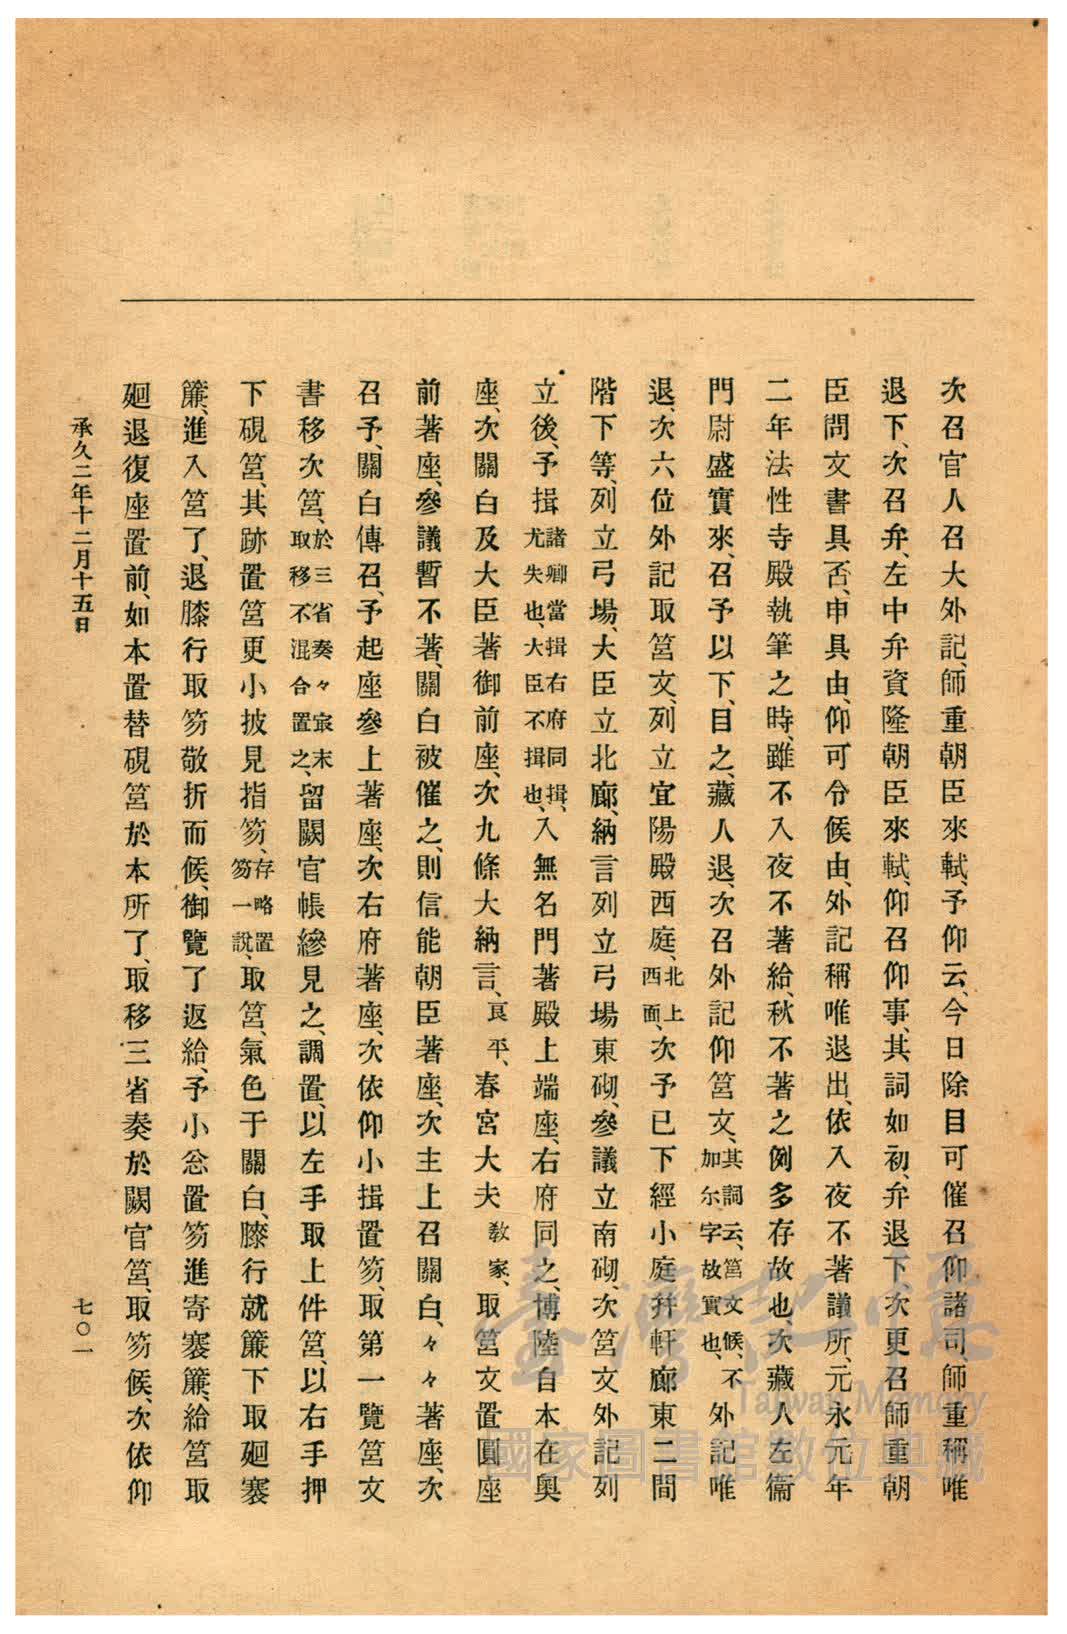 次召官人召大外記、師重朝臣來軾、予仰云、今日除目可催召仰諸司、師重稱唯
退下、次召弁、左中弁資隆朝臣來軾、仰召仰事、其詞如初、弁退下、次更召師重朝
臣問文書具否、申具由、仰可令候由、外記稱唯退出、依入夜不著議所、元永元年
二年法性寺殿執筆之時、雖不入夜不著給、秋不著之例多存故也次藏人左衞
門尉盛實來、召予以下、目之、藏人退、次召外記仰筥文、其詞云、筥文候、不加尒字故實也、外記唯
退、次六位外記取筥文、列立宜陽殿西庭、北上西面、次予已下經小庭幷軒廊東二間
階下等、列立弓場、大臣立北廊、納言列立弓場東砌、參議立南砌、次筥文外記列
立後、予揖諸卿當揖右府同揖、尤失也、大臣不揖也、入無名門著殿上端座、右府同之、博陸自本在奧
座、次關白及大臣著御前座、次九條大納言、良平、春宮大夫敎家、取筥文置圓座
前著座、參議暫不著、關白被催之、則信能朝臣著座、次主上召關白、々々著座、次
召予、關白傳召、予起座參上著座、次右府著座、次依仰小揖置笏、取第一覽筥文
書移次筥、於三省奏々㝡末取移不混合置之、留闕官帳繆見之、調置、以左手取上件筥、以右手押
下硯筥、其跡置筥更小披見指笏、存略置笏一說、取筥、氣色于關白、膝行就簾下取廻褰
簾、進入筥了、退膝行取笏敬折而候、御覽了返給、予小忩置笏進寄褰簾、給筥取
廻退復座置前、如本置替硯筥於本所了、取移三省奏於闕官筥、取笏候、次依仰
承久二年十二月十五日
七〇一
臺灣記憶
Taiwan Memory
國家圖書館數位典藏